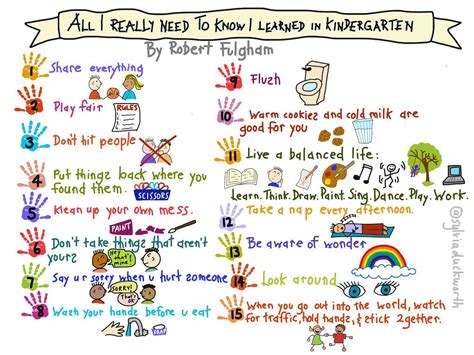 ALL I REALLY NEED TO KNOW I LEARNED IN KINDERGARTEN
By Robert Fulgham
1 Share everything
2 Play fair
RULES
3 Don't hit people
4 Put things back where you
found them.
SCISSORS
5 Klean up your own mess.
PAINT
6 Don't take things that aren't
yours
Hey that's mine!
7 Say ur sorry when u hurt someone
SORRY!
That's OK!
8 Wash your hands before u eat
9 Flush
10 Warm cookies and cold milk are
good for you
11 Live a balanced life:
Learn. Think. Draw. Paint. Sing. Dance. Play. Work.
12 Take a nap every afternoon.
13 Be aware of wonder
14 Look around
15 When you go out into the world, watch
for traffic, hold hands, & stick 2gether.
@sylviaduckworth